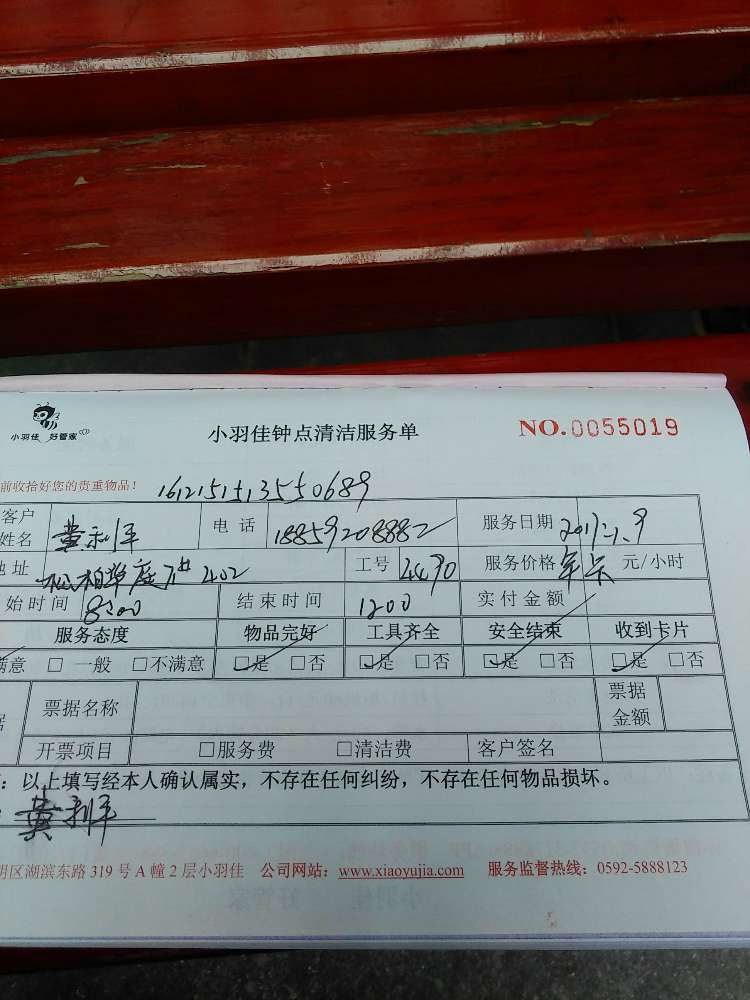 小羽佳 好管家
小羽佳钟点清洁服务单
NO.0055019
前收拾好您的贵重物品!
客户姓名 黄利军 电话 18859208882 服务日期 2017.1.9
地址 松柏华庭 402 工号 4490 服务价格 年卡 元/小时
始时间 8:00 结束时间 1200 实付金额
服务态度 物品完好 工具齐全 安全结束 收到卡片
满意 □ 一般 □不满意 □是 □否 □是 □否 □是 □否 □是 □否
票据名称 票据金额
开票项目 □服务费 □清洁费 客户签名
:以上填写经本人确认属实,不存在任何纠纷,不存在任何物品损坏。
黄利军
明区湖滨东路 319 号 A 幢 2 层小羽佳 公司网站:www.xiaoyujia.com 服务监督热线:0592-5888123